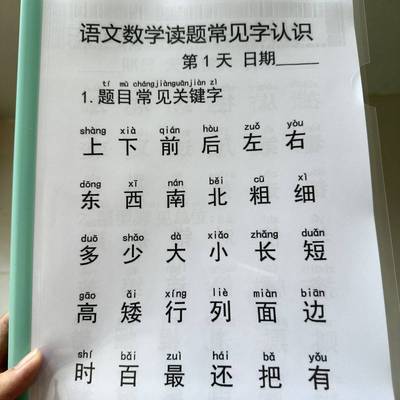 语文数学读题常见字认识
第1天 日期_____
tí mù chángjiànguānjiàn zì
1.题目常见关键字
shàng xià qián hòu zuǒ yòu
上 下 前 后 左 右
dōng xī nán běi cū xì
东 西 南 北 粗 细
duō shǎo dà xiǎo cháng duǎn
多 少 大 小 长 短
gāo ǎi xíng liè miàn biān
高 矮 行 列 面 边
shí bǎi zuì hái bǎ yǒu
时 百 最 还 把 有